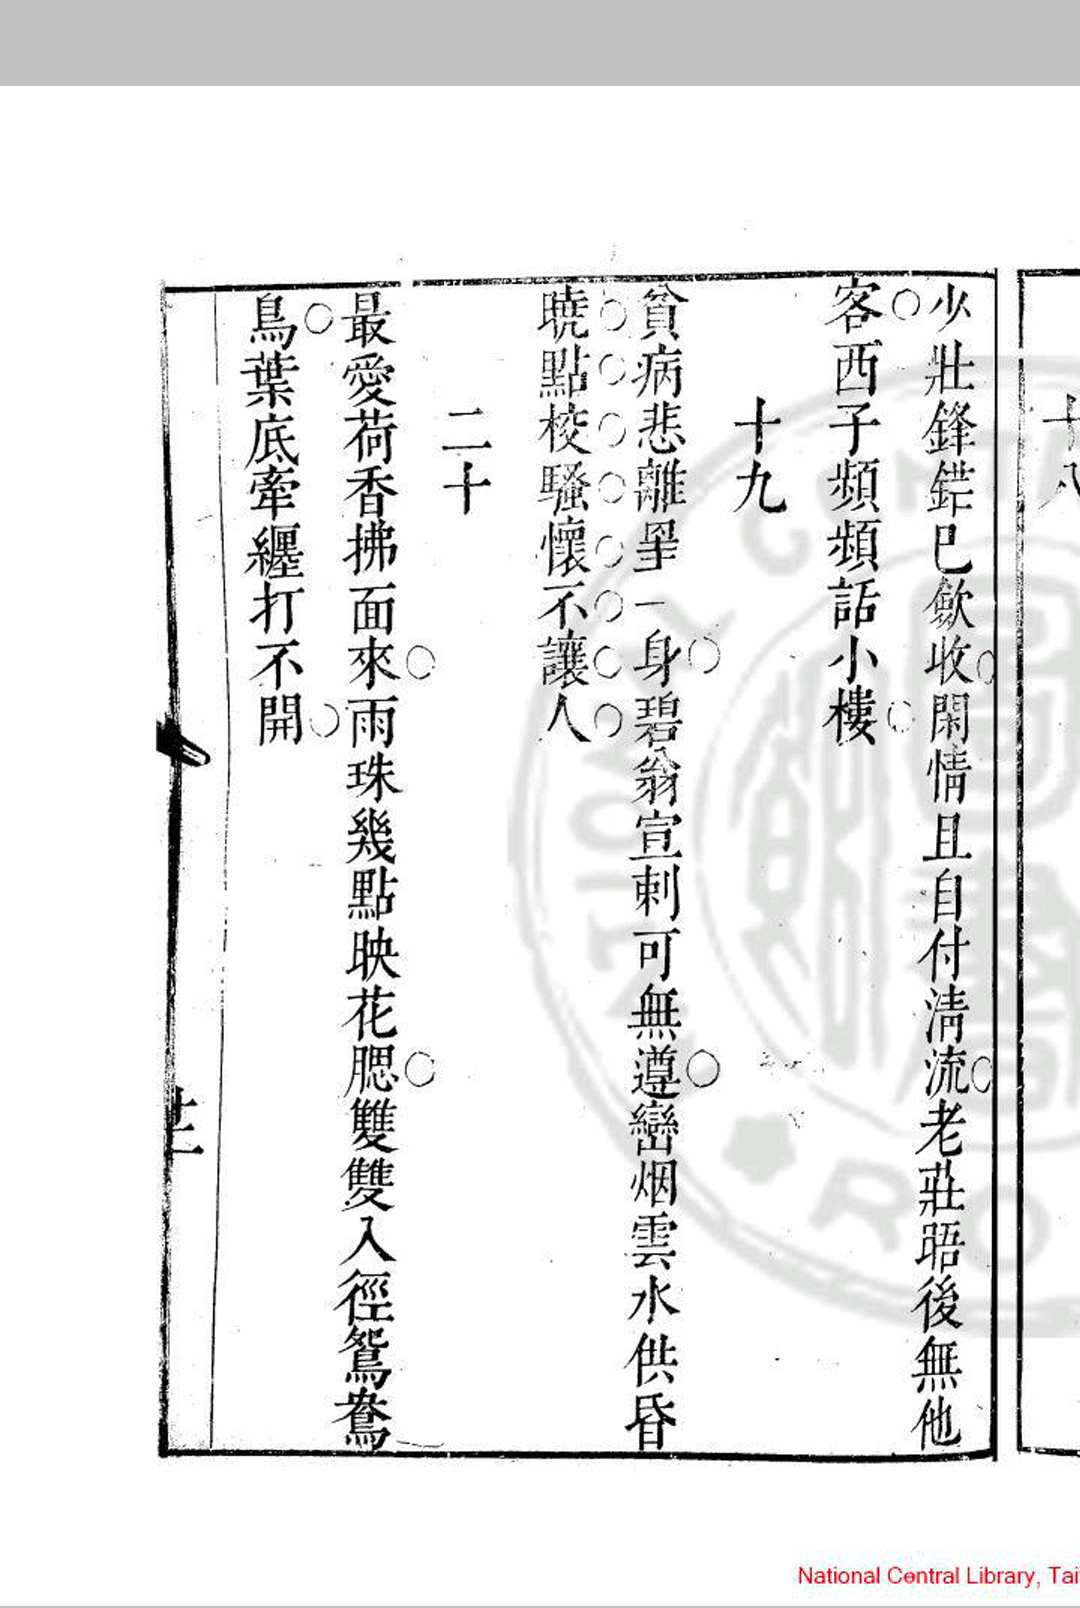 十八
少壯鋒錯已歛收閑情且自付清流老莊晤後無他
客西子頻頻話小樓
十九
貧病悲離一身碧翁宣剌可無遵巒烟雲水供昏
曉點校騷懷不讓人
二十
最愛荷香拂面來雨珠幾點映花腮雙雙入徑鴛鴦
鳥葉底牽纏打不開
National Central Library, Tai